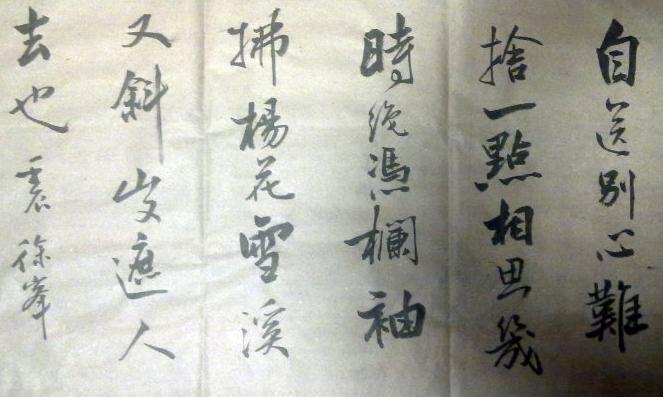 自送別心難
捨一點相思幾
時絕憑欄袖
拂楊花雪溪
又斜山又遮人
去也 徐峯